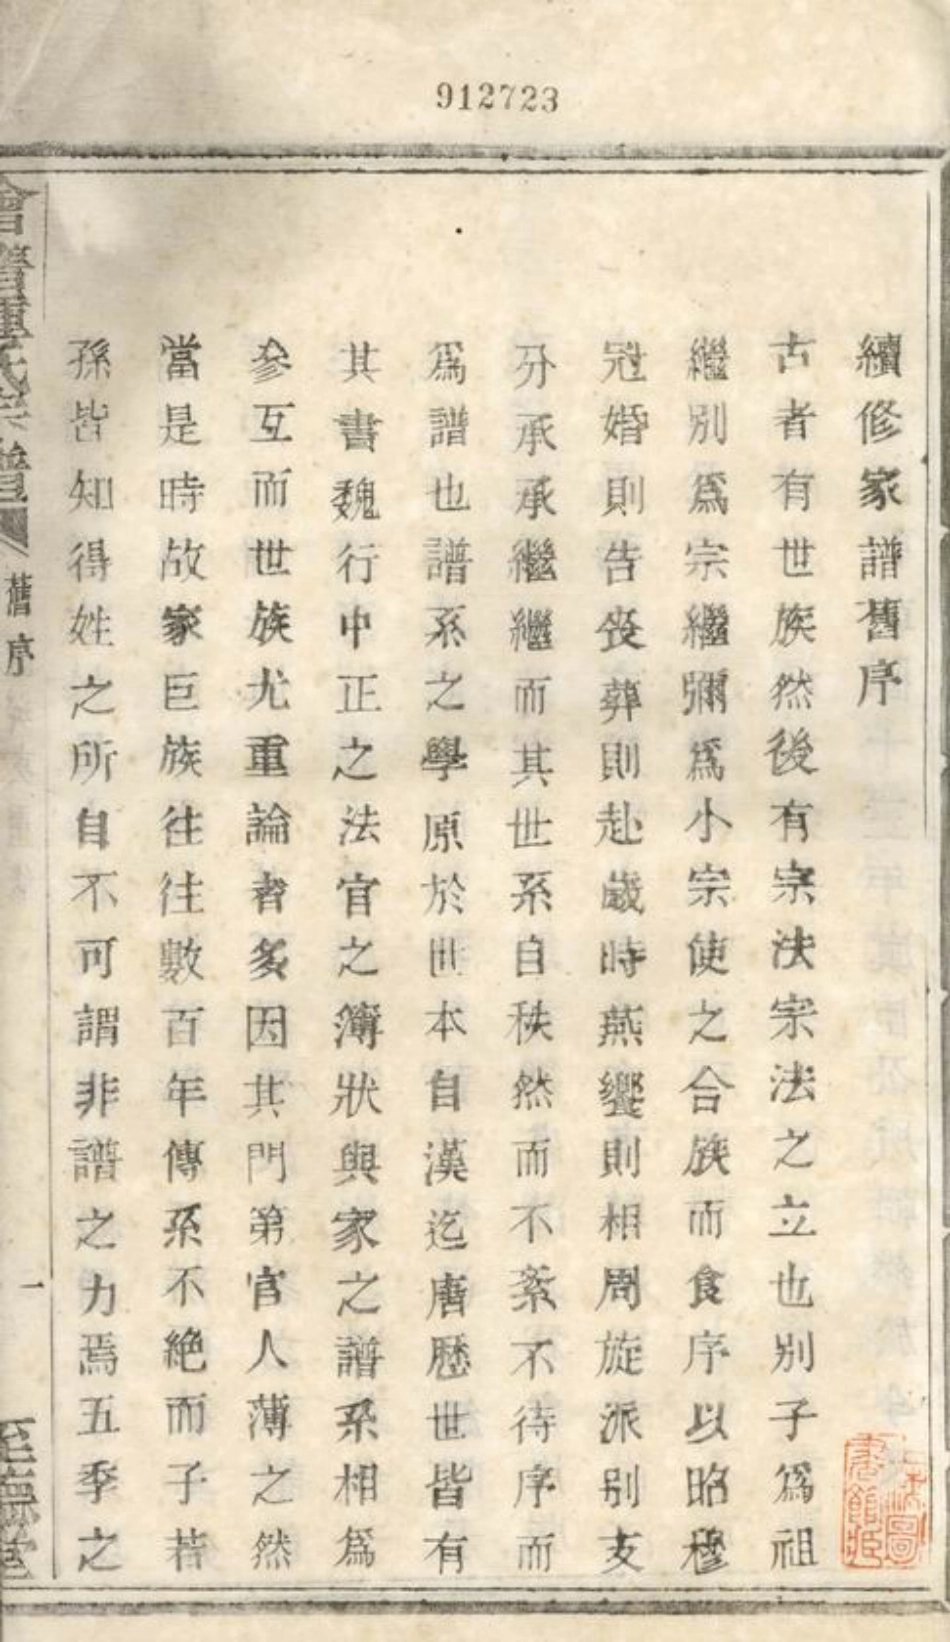 912723
續修家譜舊序
古者有世族然後有宗法宗法之立也別子爲祖
繼別爲宗繼彌爲小宗使之合族而食序以昭穆
冠婚則告喪葬則赴歲時燕饗則相周旋派別支
分承承繼繼而其世系自秩然而不紊不待序而
爲譜也譜系之學原於世本自漢迄唐歷世皆有
其書魏行中正之法官之簿狀與家之譜系相爲
參互而世族尤重論者多因其門第官人薄之然
當是時故家巨族往往數百年傳系不絕而子若
孫皆知得姓之所自不可謂非譜之力焉五季之
氏宗譜
舊序
一
至德堂